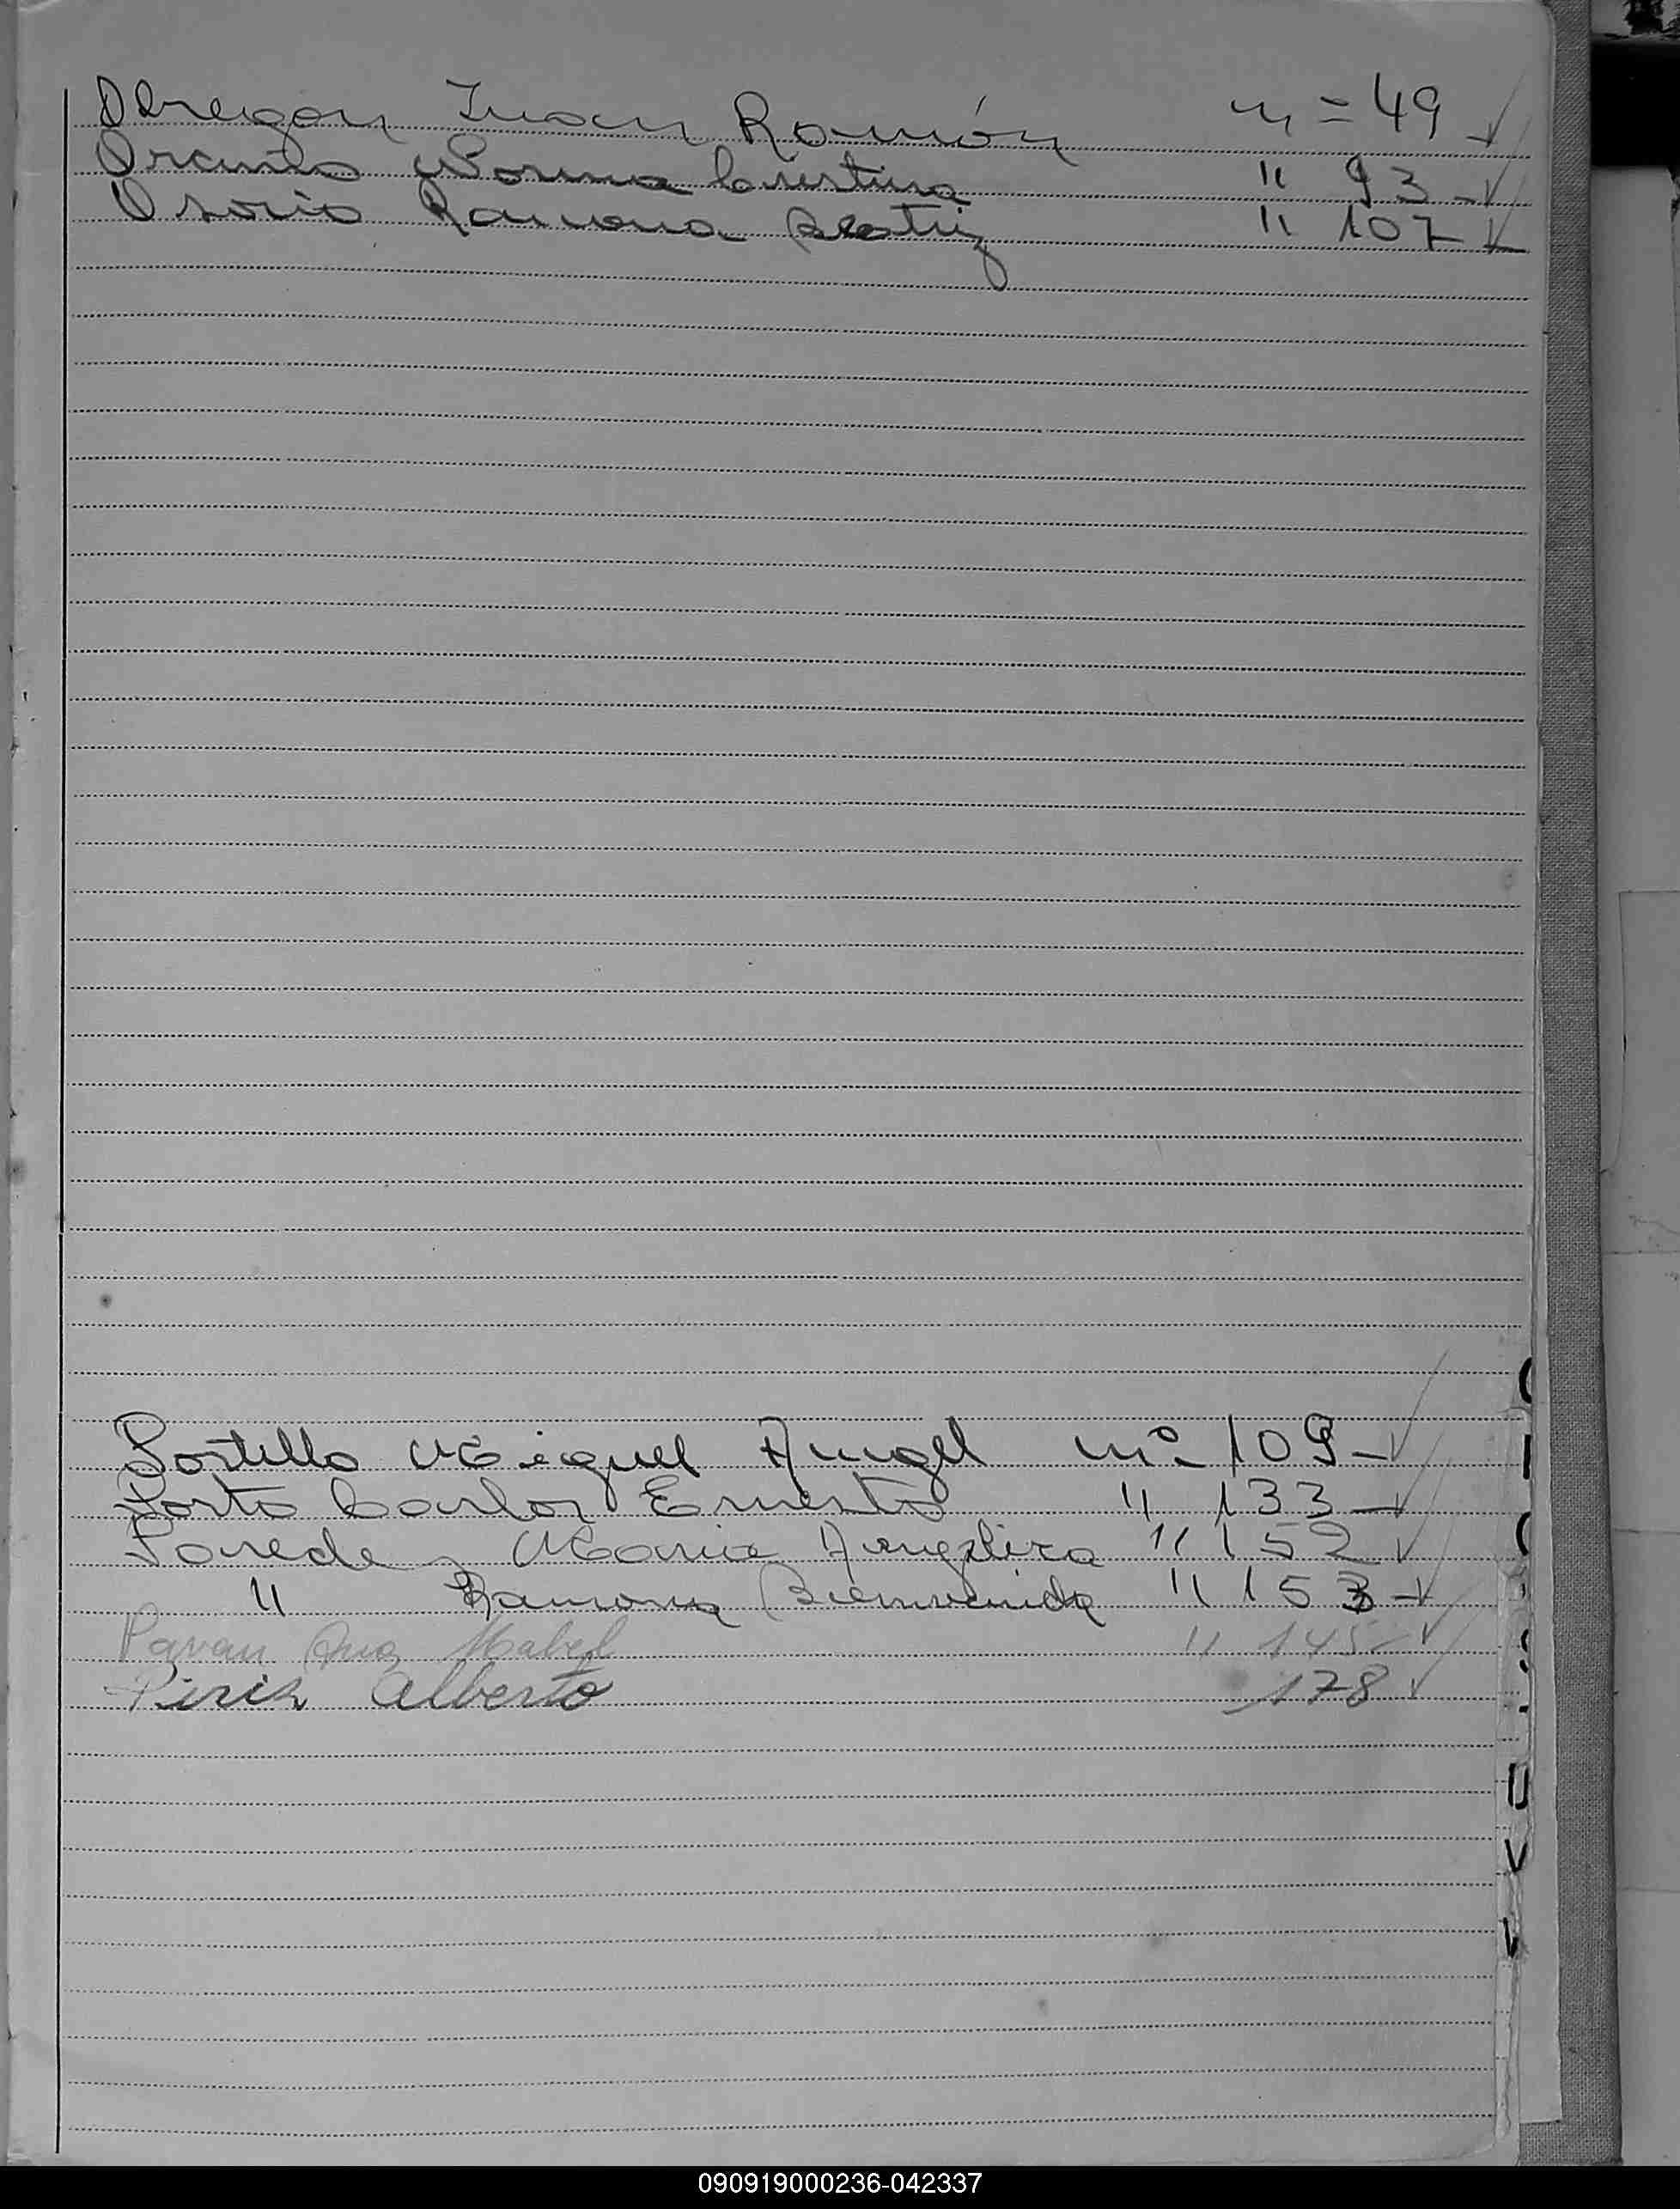 Obregon Juan Ramón n = 49
Norma Cristina " 93
Osorio Ramona Beatriz " 107
Portillo Miguel Angel nº 109
Porto Carlos Ernesto " 133
Paredes Maria Angelica " 152
" Ramona Bienvenida " 153
Pavan Ana Mabel " 145
Piris Alberto 178
U
V
090919000236-042337